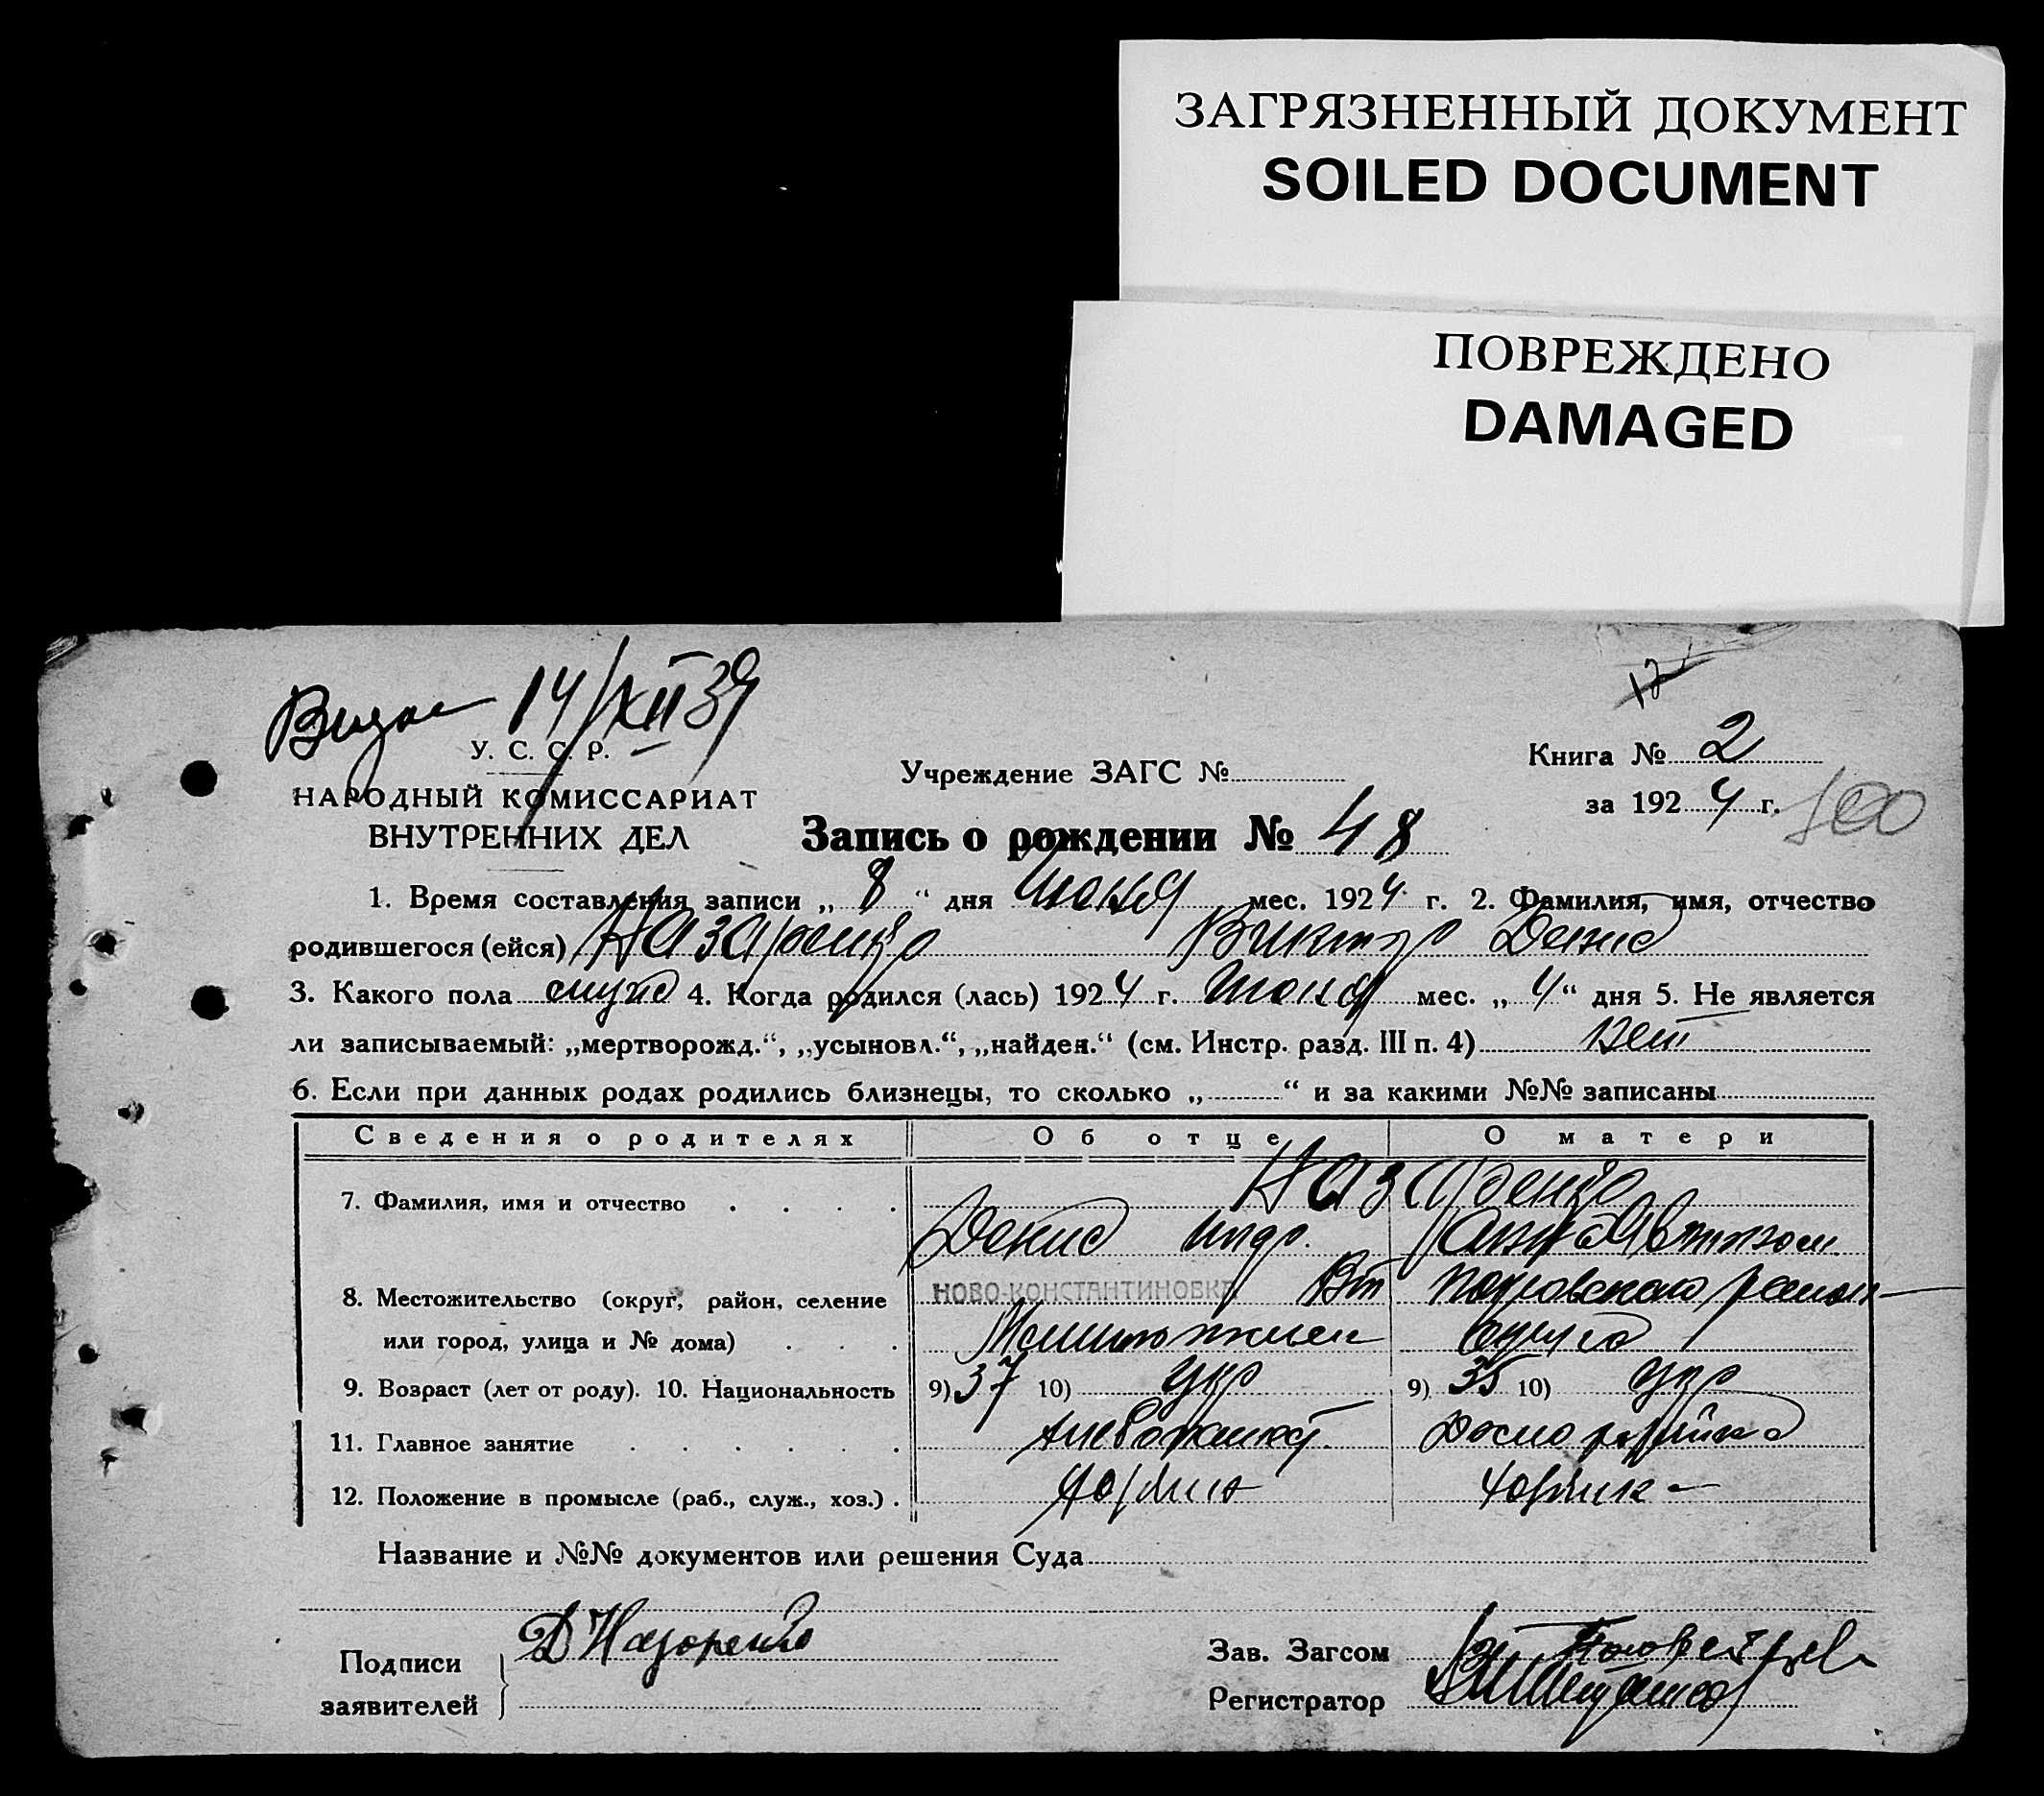 ЗАГРЯЗНЕННЫЙ ДОКУМЕНТ
SOILED DOCUMENT
ПОВРЕЖДЕНО
DAMAGED
12
14/XII 39
У. С. С. Р.
НАРОДНЫЙ КОМИССАРИАТ
ВНУТРЕННИХ ДЕЛ
Учреждение ЗАГС №
Книга № 2
за 1924 г.
Запись о рождении № 48
1. Время составления записи „ 8 “ дня Июня мес. 1924 г. 2. Фамилия, имя, отчество
родившегося (ейся) Назаренко Виктор Денис
3. Какого пола 4. Когда родился (лась) 1924 г. Июня мес. „ 4 “ дня 5. Не является
ли записываемый: „мертворожд.“, „усыновл.“, „найден.“ (см. Инстр. разд. III п. 4) нет
6. Если при данных родах родились близнецы, то сколько „ “ и за какими №№ записаны
Сведения о родителях Об отце О матери
Назаренко
7. Фамилия, имя и отчество
Денис Анна
8. Местожительство (округ, район, селение НОВО-КОНСТАНТИНОВКА Покровского район
или город, улица и № дома)
9. Возраст (лет от роду). 10. Национальность 9) 37 10) Укр 9) 35 10) Укр
11. Главное занятие
12. Положение в промысле (раб., служ., хоз.)
Название и №№ документов или решения Суда
Подписи
заявителей
Д Назаренко
Зав. Загсом
Регистратор